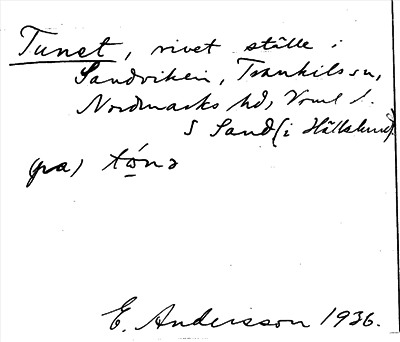 Tunet, rivet ställe i
Sandviken, Trankils sn,
Nordmarks hd, Vrml l.
S Sand (i Hällelund).
(pa) tɷ́nə
E. Andersson 1936.